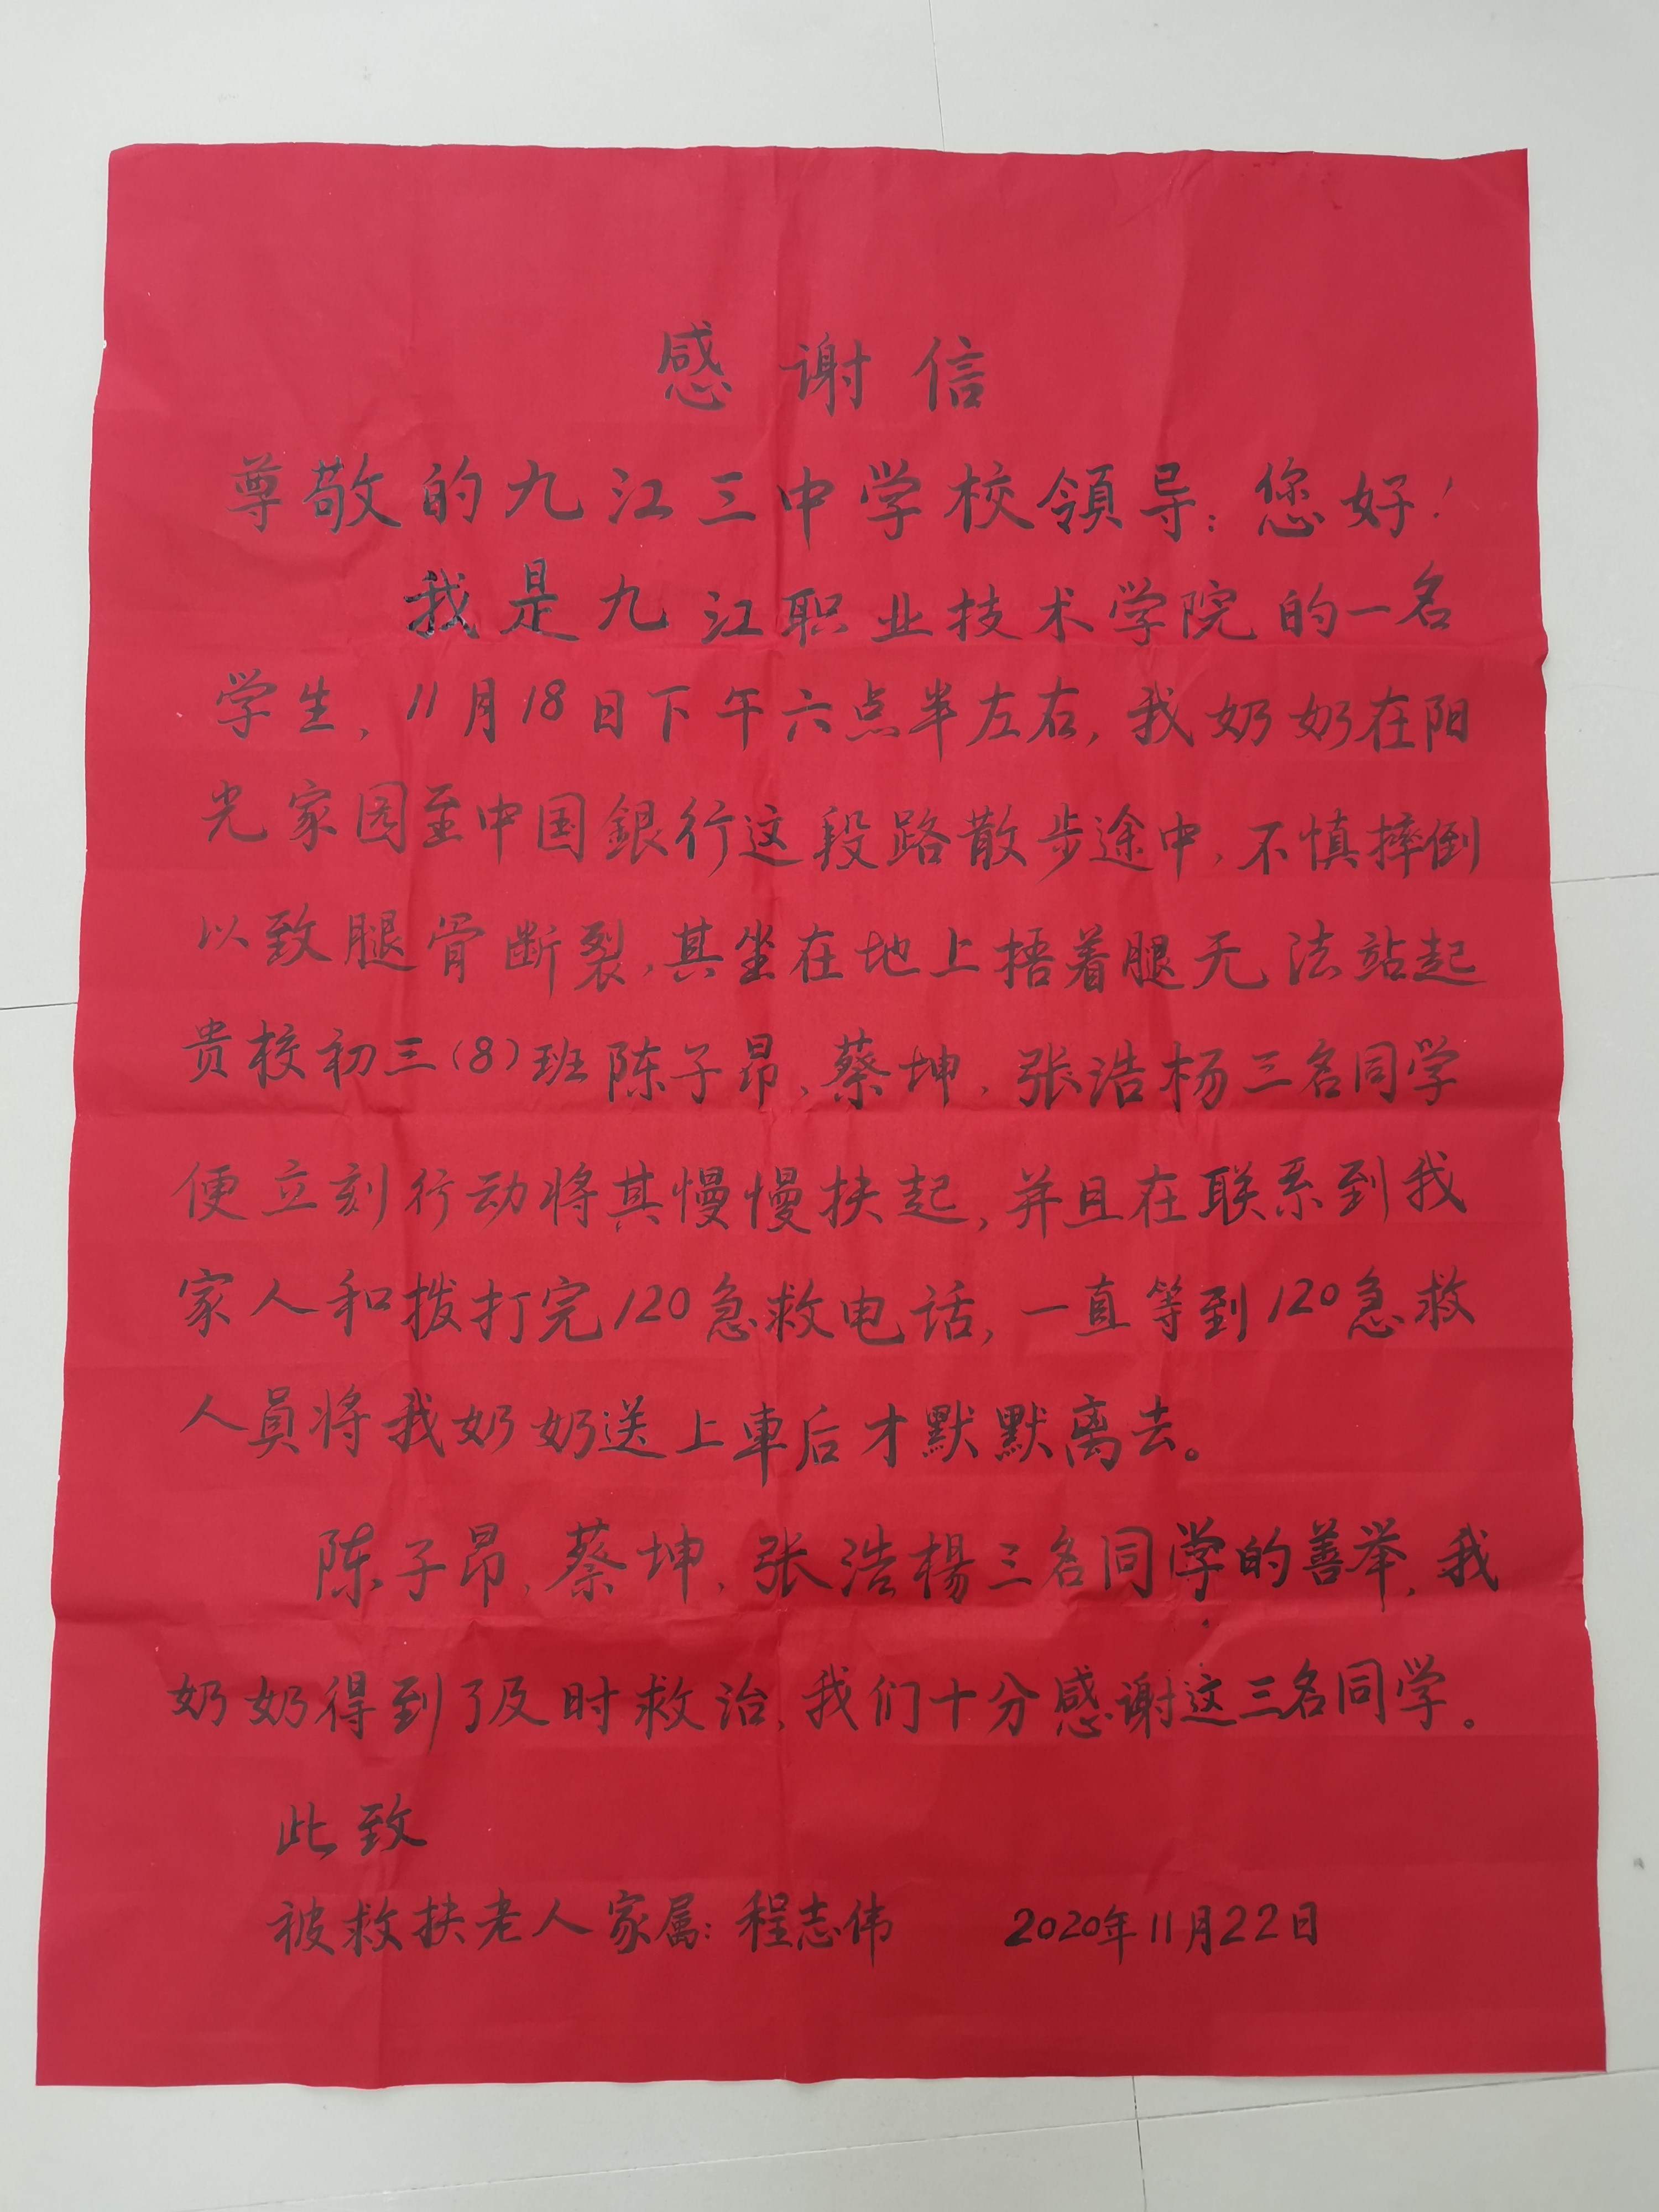 感谢信
尊敬的九江三中学校領导：您好！
我是九江职业技术学院的一名
学生，11月18日下午六点半左右，我奶奶在阳
光家园至中国銀行这段路散步途中，不慎摔倒
以致腿骨断裂，其坐在地上捂着腿无法站起
贵校初三(8)班陈子昂、蔡坤、张浩杨三名同学
便立刻行动将其慢慢扶起，并且在联系到我
家人和拨打完120急救电话，一直等到120急救
人員将我奶奶送上車后才默默离去。
陈子昂、蔡坤、张浩楊三名同学的善举，我
奶奶得到了及时救治，我们十分感谢这三名同学。
此致
被救扶老人家属：程志伟 2020年11月22日